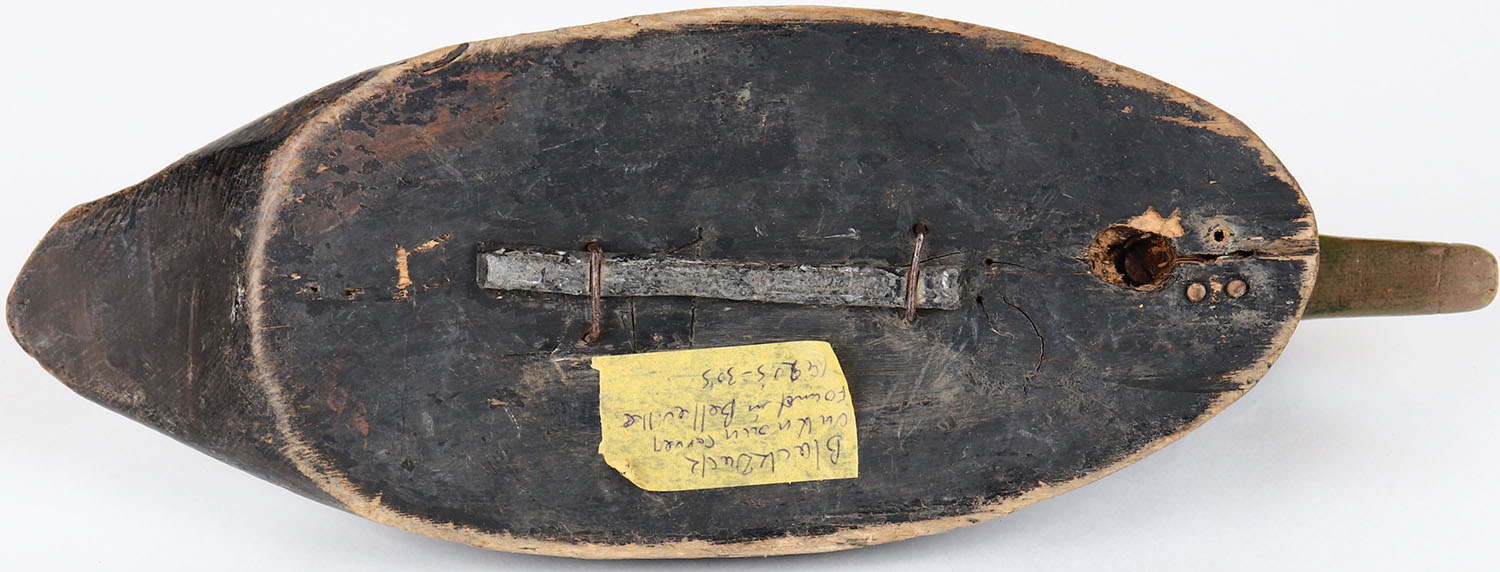 Black Duck
unknown carver
Found in Belleville
1920's-30's